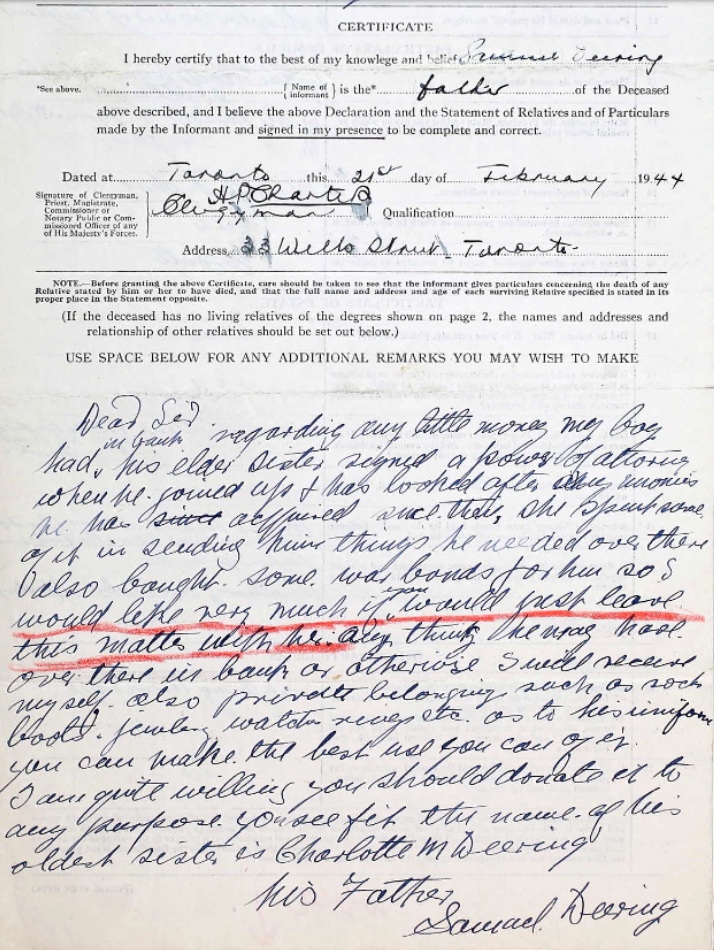 CERTIFICATE
I hereby certify that to the best of my knowlege and belief Samuel Deering
*See above. { Name of informant } is the* father of the Deceased
above described, and I believe the above Declaration and the Statement of Relatives and of Particulars
made by the Informant and signed in my presence to be complete and correct.
Dated at Toronto this 21st day of February 1944
Signature of Clergyman,
Priest, Magistrate,
Commissioner or
Notary Public or Com-
missioned Officer of any
of His Majesty's Forces.
H P Charters
Clergyman Qualification
Address 33 Wells Street, Toronto.
NOTE.—Before granting the above Certificate, care should be taken to see that the informant gives particulars concerning the death of any
Relative stated by him or her to have died, and that the full name and address and age of each surviving Relative specified is stated in its
proper place in the Statement opposite.
(If the deceased has no living relatives of the degrees shown on page 2, the names and addresses and
relationship of other relatives should be set out below.)
USE SPACE BELOW FOR ANY ADDITIONAL REMARKS YOU MAY WISH TO MAKE
Dear Sir
regarding any little money my boy
had, in bank his elder sister signed a power of attorney
when he joined up & has looked after any monies
he has since acquired since then, she spent some
of it in sending him things he needed over there
also bought some war bonds for him so I
would like very much if you would just leave
this matter with her. any thing he may have
over there in bank or otherwise I will receive
myself. also private belongings such as socks
boots. jewlery watch rings etc. as to his uniform
you can make the best use you can of it.
I am quite willing you should donate it to
any purpose you see fit the name of his
oldest sister is Charlotte M Deering
his Father
Samuel Deering